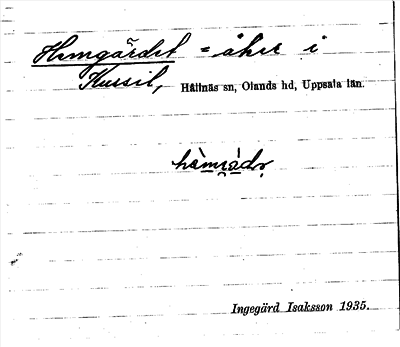 Hemgärdet = åker i
Hussil, Hållnäs sn, Olands hd, Uppsala län.
Ingegärd Isaksson 1935.